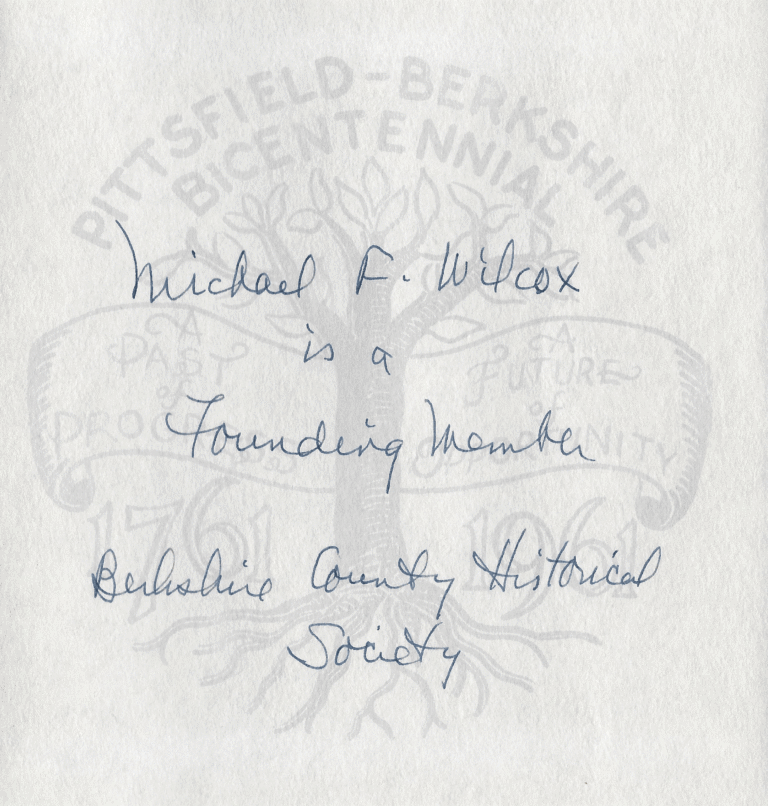 PITTSFIELD-BERKSHIRE
BICENTENNIAL
Michael F. Wilcox
is a
Founding Member
Berkshire County Historical
Society
A
PAST
of
PROGRESS
A
FUTURE
of
OPPORTUNITY
1761
1961